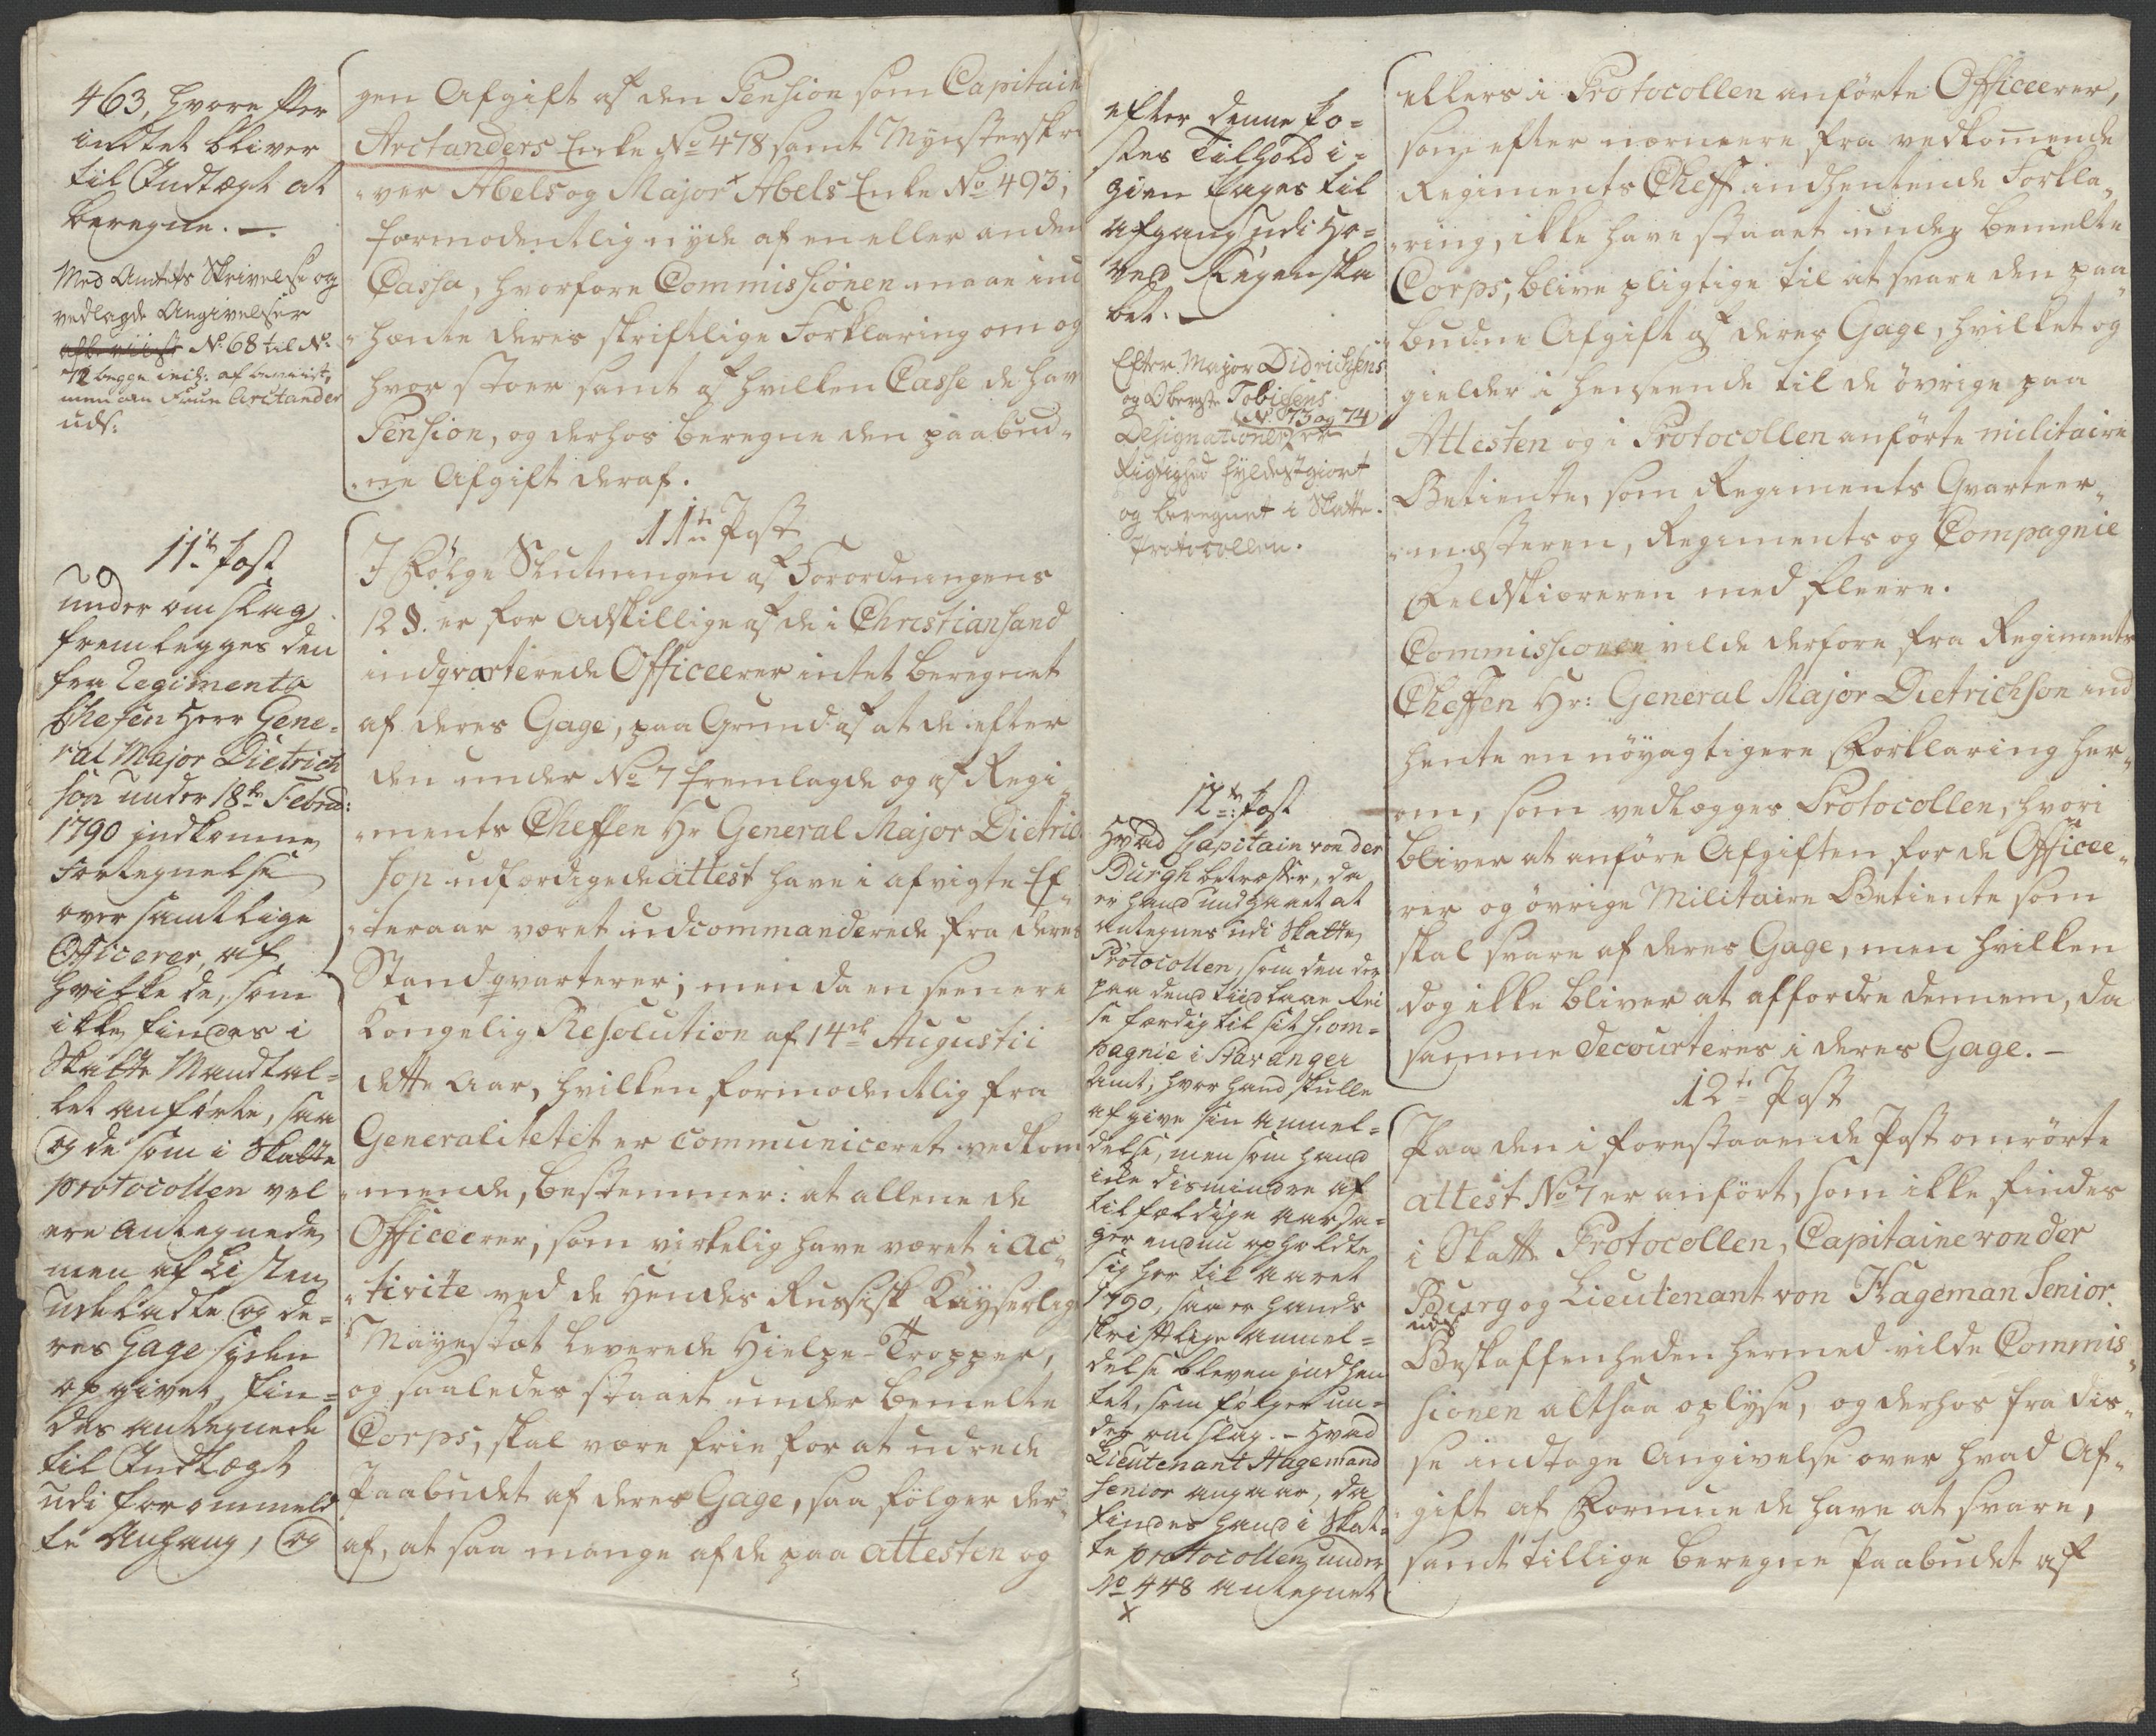 463, hvorefter
intet bliver
til Indtægt at
beregne. —
Med Amtets Skrivelse og
vedlagde Angivelser
No 68 til No
72 begge incl: af beviist,
men om Fruen Arctander
uds:
11te Post
under omslag
fremlegges den
fra Regiments
Chefen Herr Gene=
ral Major Dietrich
son under 18de Febru:
1790 indkomne
Fortegnelse
over samtlige
Officerer, af
hvilke de, som
ikke findes i
Skatte Mandtal=
let anførte, saa
og de som i Skatte
protocollen vel
ere antegnede
men af Listen
udeladte og de=
res Gage siden
opgivet, fin=
des antegnede
til Indtægt
udi forommeld
te Anhang, og
gen Afgift af den Pension som Capitain
Arctanders Enke No 478 samt Mynsterskri
ver Abels og Major Abels Enke No 493,
formodentlig nyde af en eller anden
Cassa, hvorfore Commissionen maae ind
hænte deres skriftlige Forklaring om og
hvor stoer samt af hvilken Casse de hav
Pension, og derhos beregne den paabud„
„ne Afgift deraf.
11te Post
I Følge Slutningen af Forordningens
12 §. er for Adskillige af de i Christiansand
indqvarterede Officeerer intet beregnet
af deres Gage, paa Grund af at de efter
den under No 7 fremlagde og af Regi„
„ments Cheffen Hr General Major Dietrich
son udfærdigede attest have i afvigte Ef„
„teraar været udcommanderede fra deres
Standqvarterer; men da en seenere
Kongelig Resolution af 14de Augustii
dette Aar, hvilken formodentlig fra
Generalitetet er communiceret vedkom
„mende, bestemmer: at allene de
Officeerer, som virkelig have været i ac„
„tivite ved de Hendes Russisk Kayserlig
Mayestæt leverede Hielpe-Tropper,
og saaledes staaet under bemelte
Corps, skal være frie for at udrede
Paabudet af deres Gage, saa følger der„
af, at saa mange af de paa attesten og
efter denne Po=
stes Tilhold i=
gien tages til
Afgang udi Ho=
ved Regenska
bet. —
Efter Major Didrichsens
og Oberste Tobiesens
(No 73 og 74)
Designationer er
Rigtighed fyldestgiort
og beregnet i Skatte
Protocollen.
12te Post
Hvad Capitain von der
Burgh betræffer, da
er hand undgaaet at
antegnes udi Skatte
Protocollen, som den der
paa dend tiid laae Rei
se færdig til sit Com=
pagnie i Stavanger
Amt, hvor hand skulle
afgive sin anmel=
delse, men som hand
icke dismindre af
tilfældige aarsa=
ger endnu opholdte
sig her til Aaret
1790, saa er hands
skriftlige anmel=
delse bleven indhen
tet, som følger un=
der omslag. — Hvad
Lieutenant Hagemand
senior angaar, da
findes hand i Skat=
te protocollen under
No 448 antegnet
x
ellers i Protocollen anførte Officeerer,
som efter nærmere fra vedkommende
Regiments Cheff indhentende Forkla„
„ring, ikke have staaet under bemelte
Corps, blive pligtige til at svare den paa„
„budne Afgift af deres Gage, hvilket og
gielder i henseende til de øvrige paa
Attesten og i Protocollen anførte militaire
Betiente, som Regiments Qvarteer„
„mesteren, Regiments og Compagnie
Feldskiæreren med fleere.
Commissionen vilde derfore fra Regiments
Cheffen Hr: General Major Dietrichson ind
hente en nøyagtigere Forklaring her„
om, som vedlegges Protocollen, hvori
bliver at anføre Afgiften for de Officee„
rer og øvrige Militaire Betiente som
skal svare af deres Gage, men hvilken
dog ikke bliver at affordre dennem, da
samme decourteres i deres Gage. —
12te Post
Paa den i forestaaende Post omrørte
attest No 7 er anført, som ikke findes
i Skatte Protocollen, Capitaine von der
Burg og Lieutenant von Hageman Senior.
uds
Beskaffenheden hermed vilde Commis„
sionen altsaa oplyse, og derhos fra dis„
se indtage Angivelse over hvad Af„
gift af Formue de have at svare,
samt tillige beregne Paabudet af